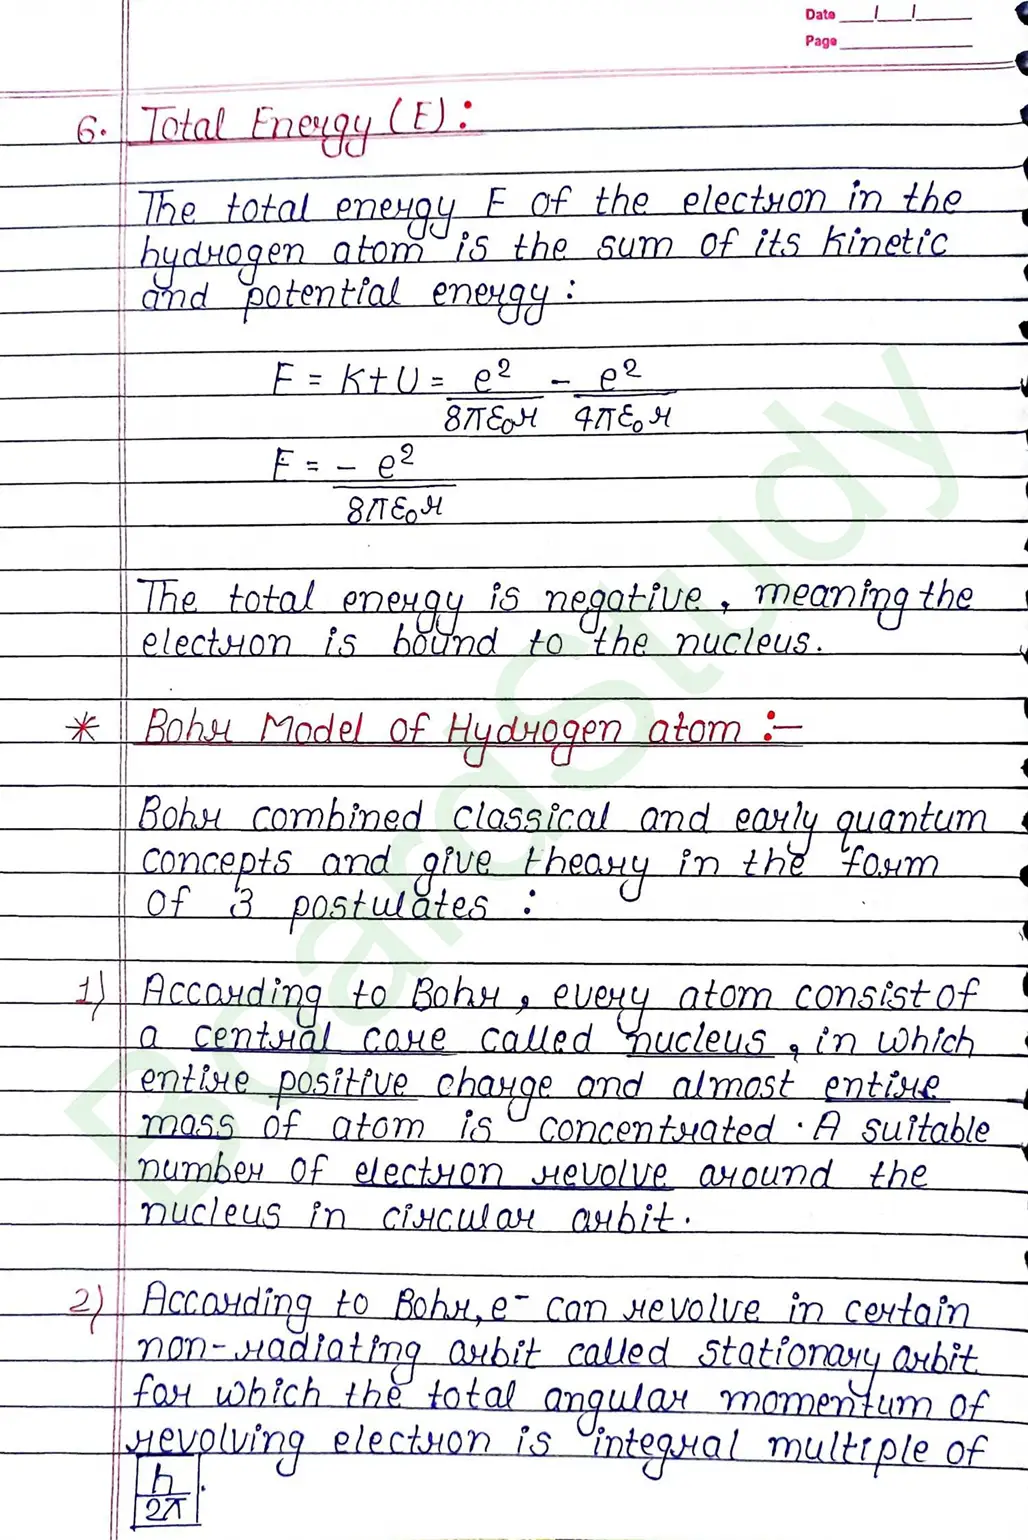 Date ___/___/___
Page ___
6. Total Energy (E) :
The total energy E of the electron in the
hydrogen atom is the sum of its kinetic
and potential energy :
E = K+U = e²/8πε₀r - e²/4πε₀r
E = - e²/8πε₀r
The total energy is negative, meaning the
electron is bound to the nucleus.
* Bohr Model of Hydrogen atom :-
Bohr combined classical and early quantum
concepts and give theory in the form
of 3 postulates :
1) According to Bohr, every atom consist of
a central core called nucleus, in which
entire positive charge and almost entire
mass of atom is concentrated. A suitable
number of electron revolve around the
nucleus in circular orbit.
2) According to Bohr, e⁻ can revolve in certain
non-radiating orbit called stationary orbit
for which the total angular momentum of
revolving electron is integral multiple of
h/2π.
BoardStudy